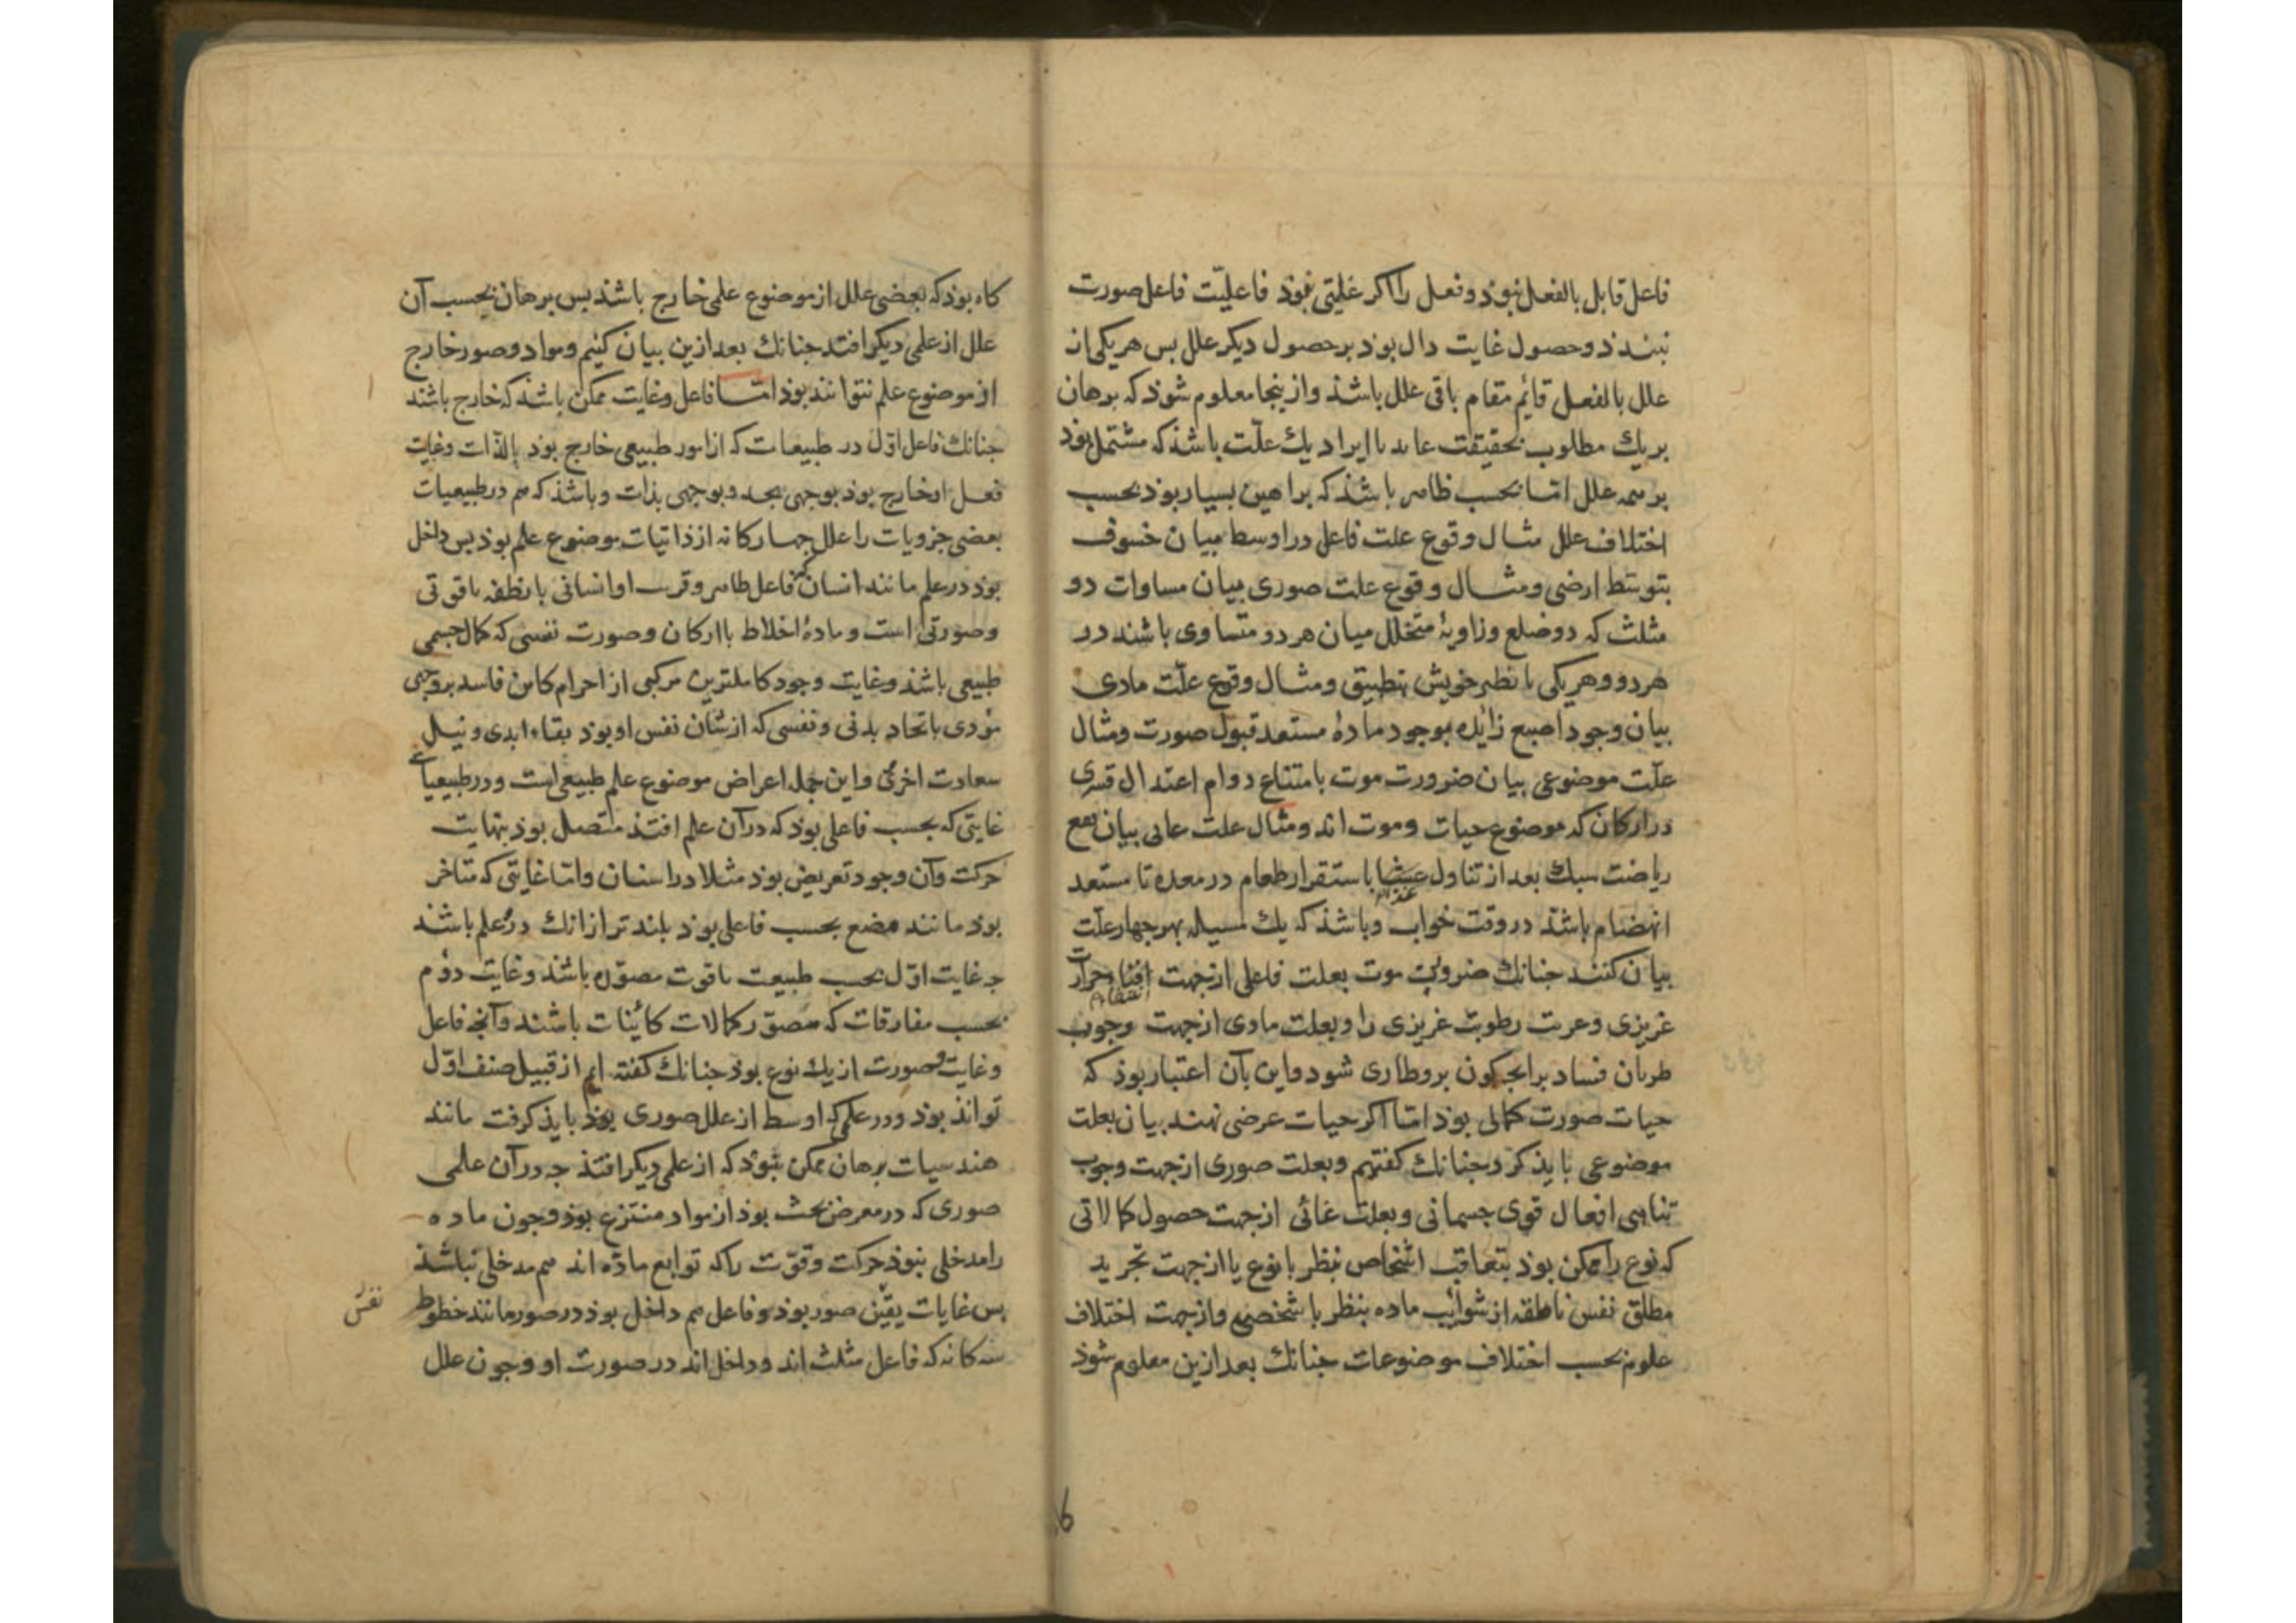 فاعل قابل بالفعل نبوذ و فعل را اکر غلیتی نبوذ فاعلیّت فاعل صورت
نبندذ و حصول غایت دال بوذ بر حصول دیکر علل بس هر یکی از
علل بالفعل قائم مقام باقی علل باشذ و ازینجا معلوم شوذ که برهان
بریك مطلوب بحقیقت عاید با ایراد یك علّت باشذ که مشتمل بوذ
بر همه علل امّا بحسب ظاهر باشذ که براهین بسیار بوذ بحسب
اختلاف علل مثال وقوع علت فاعل در اوسط بیان خسوف
بتوسّط ارضی و مثال وقوع علت صوری بیان مساوات دو
مثلث که دو ضلع و زاویهٔ متخلل میان هر دو متساوی باشند در
هر دو و هر یکی با نظیر خویش بتطبیق و مثال وقوع علّت مادی
بیان وجود اصبع زایده بوجود مادهٔ مستعد قبول صورت و مثال
علّت موضوعی بیان ضرورت موت بامتناع دوام اعتدال قسری
در ارکان که موضوع حیات و موت اند و مثال علت غایی بیان نفع
ریاضت سبك بعد از تناول باستقرار طعام در معده تا مستعد
انهضام باشذ در وقت خواب و باشذ که یك مسیله بهر جهار علّت
بیان کنند جنانك ضرورت موت بعلت فاعلی از جهت افناء حرارت
غریزی رطوبت غریزی را و بعلت مادی از جهت وجوب
طریان فساد برانجه کون برو طاری شود و این بآن اعتبار بوذ که
حیات صورت کمالی بوذ امّا اکر حیات عرضی نهند بیان بعلت
موضوعی بایذ کرد جنانك کفتیم و بعلت صوری از جهت وجوب
تناهی افعال قوی جسمانی و بعلت غائی از جهت حصول کمالاتی
که نوع را ممکن بوذ بتعاقب اشخاص بنظر با نوع یا از جهت تجرید
مطلق نفس ناطقه از شوائب ماده بنظر با شخص و از جهت اختلاف
علوم بحسب اختلاف موضوعات جنانك بعد ازین معلوم شوذ
6
کاه بوذ که بعضی علل از موضوع علمی خارج باشند بس برهان بحسب آن
علل از علمی دیکر افتد جنانك بعد ازین بیان کنیم و مواد و صور خارج
از موضوع علم نتوانند بوذ امّا فاعل و غایت ممکن باشذ که خارج باشند
جنانك فاعل اوّل در طبیعیات که از امور طبیعی خارج بوذ بالذّات و غایت
فعل او خارج بوذ بوجهی بحد و بوجهی بذات و باشذ که هم در طبیعیات
بعضی جزویات را علل جهارکانه از ذاتیات موضوع علم بوذ بس داخل
بوذ در علم مانند انسان که فاعل ظاهر و قریب او انسانی با نطفه با قوتی
و صورتی است و مادهٔ اخلاط با ارکان و صورت نفسی که کمال جسمی
طبیعی باشذ و غایت وجود کاملترین مرکبی از اجرام کاین فاسد بر وجهی
مؤدی باتحاد بدنی و نفسی که از شان نفس او بوذ بقاء ابدی و نیل
سعادت اخروی و این جمله اعراض موضوع علم طبیعی است و در طبیعیات
غایتی که بحسب فاعلی بوذ که در آن علم افتذ متصل بوذ بنهایت
حرکت و آن وجود تعریض بوذ مثلا در اسنان و امّا غایتی که متاخر
بوذ مانند هضع بحسب فاعلی بوذ بلند تر از انك در علم باشند
جه غایت اوّل بحسب طبیعت با قوت مصوّره باشند و غایت دوّم
بحسب مفارقات که مصوّر کمالات کائنات باشند و آنجه فاعل
و غایت و صورت از یك نوع بوذ جنانك کفته ایم از قبیل صنف اوّل
تواند بوذ و در علمی که اوسط از علل صوری بوذ بایذ کرفت مانند
هندسیات برهان ممکن نبوذ که از علمی دیکر افتذ جه در آن علمی
صوری که در معرض بحث بوذ از مواد منتزع بوذ و جون ماده
را مدخلی نبوذ حرکت و قوّت را که توابع مادّه اند هم مدخلی نباشذ
بس غایات یقین صور بوذ و فاعل هم داخل بوذ در صور مانند خطوط
نفس
سه کانه که فاعل مثلث اند و داخل اند در صورت او و جون علل